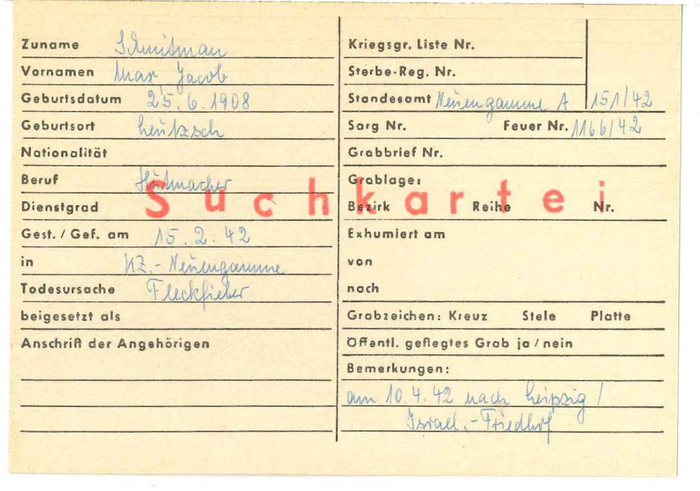 Zuname Schnitman
Vornamen Max, Jacob
Geburtsdatum 25.6.1908
Geburtsort Leutzsch
Nationalität
Beruf Hutmacher
Suchkartei
Dienstgrad
Gest./Gef. am 15.2.42
in KZ.-Neuengamme
Todesursache Fleckfieber
beigesetzt als
Anschrift der Angehörigen
Kriegsgr. Liste Nr.
Sterbe-Reg. Nr.
Standesamt Neuengamme A 151/42
Sarg Nr. Feuer Nr. 1166/42
Grabbrief Nr.
Grablage:
Bezirk Reihe Nr.
Exhumiert am
von
nach
Grabzeichen: Kreuz Stele Platte
Öffentl. gepflegtes Grab ja/nein
Bemerkungen:
am 10.4.42 nach Leipzig /
Israel.-Friedhof